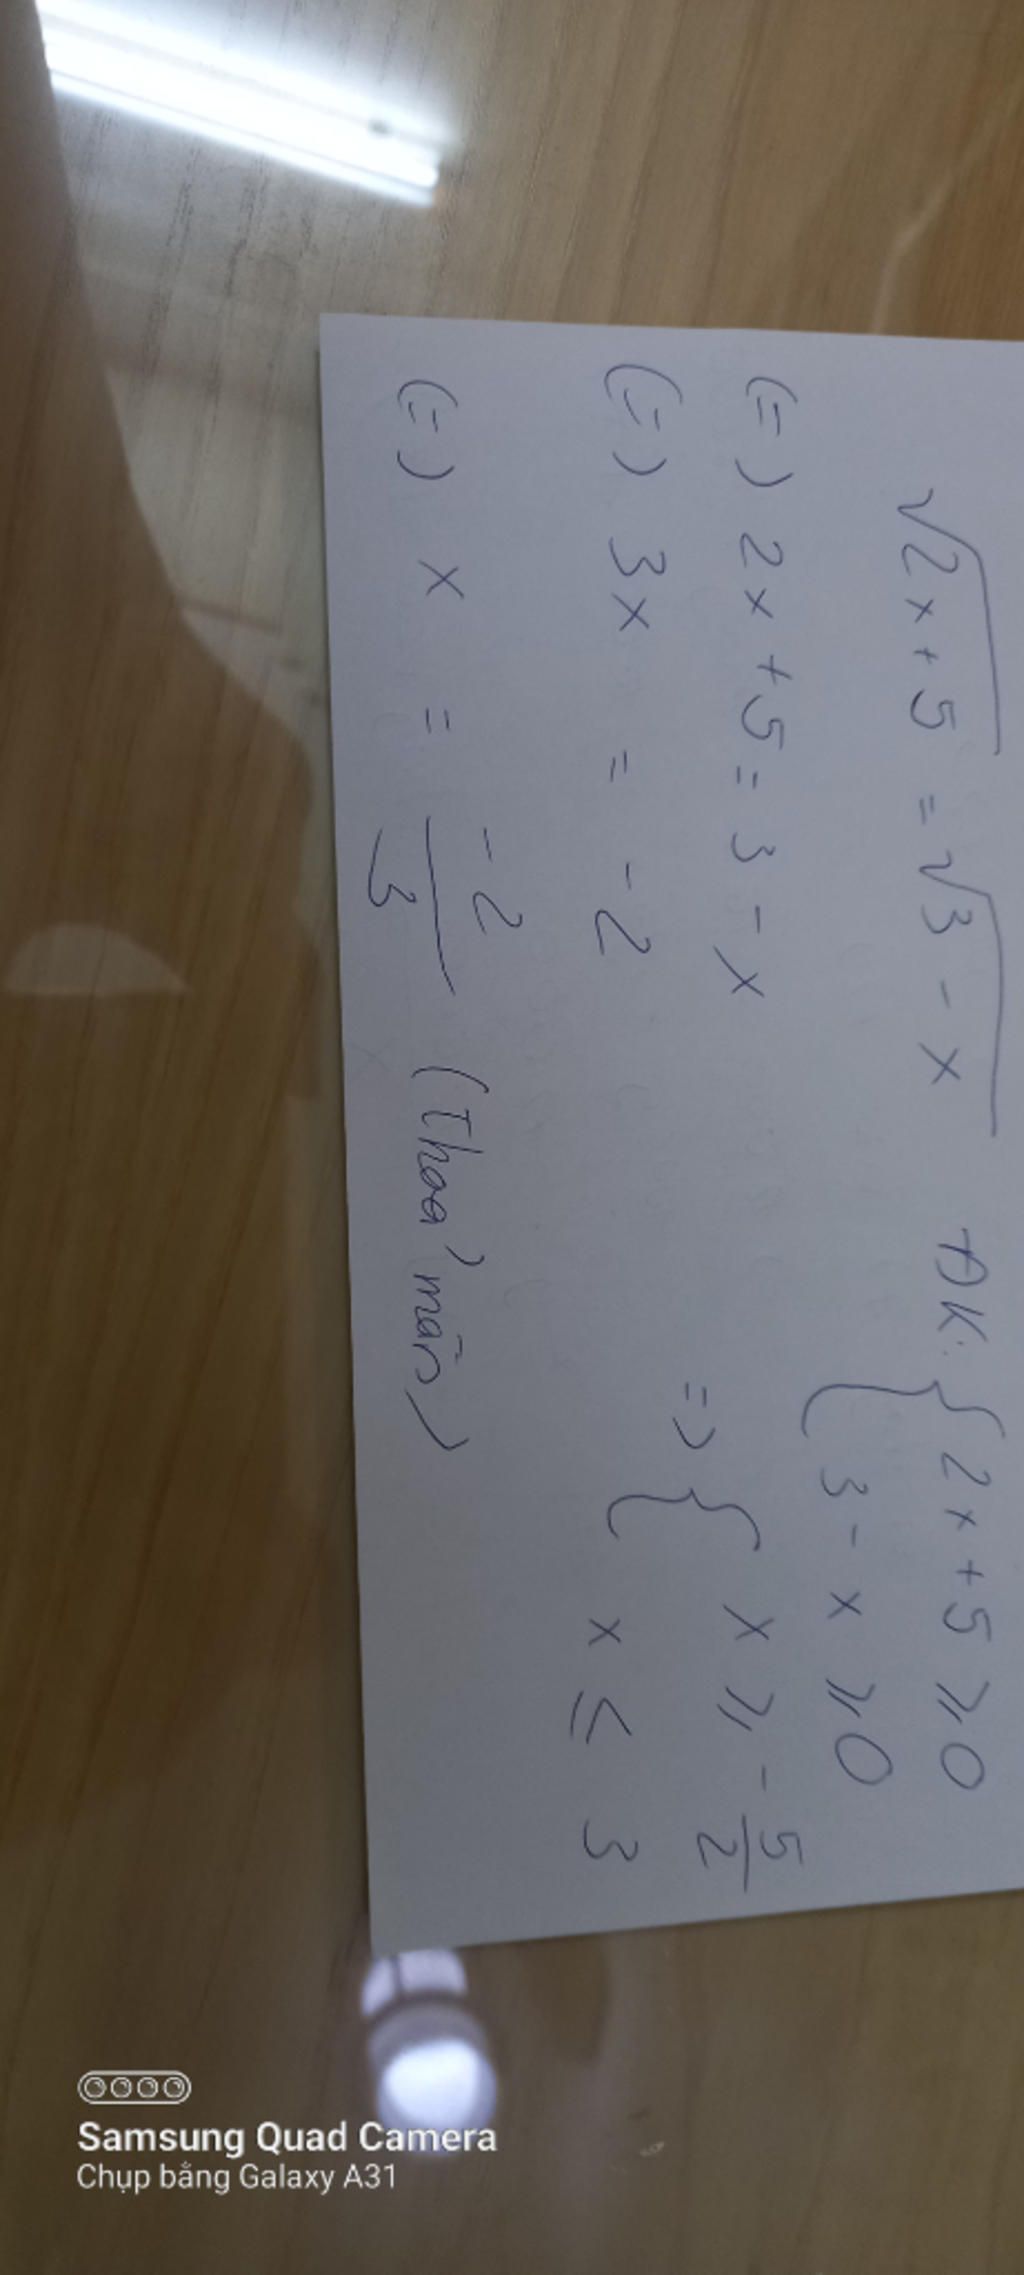 √2x+5 = √3-x ĐK: { 2x+5 ⩾ 0
3-x ⩾ 0
(=) 2x+5 = 3-x => { x ⩾ -5/2
(=) 3x = -2 x ≤ 3
(=) x = -2/3 (thoả mãn)
Samsung Quad Camera
Chụp bằng Galaxy A31